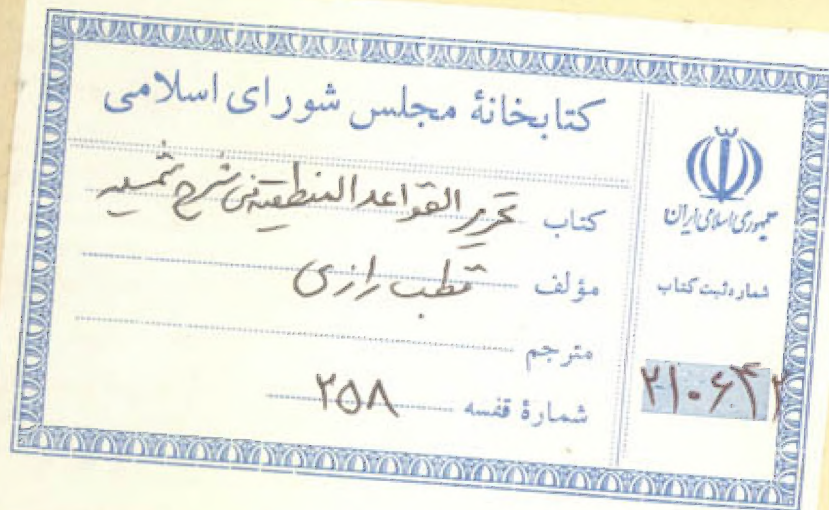 کتابخانهٔ مجلس شورای اسلامی
کتاب تحریر القواعد المنطقیة فی شرح شمسیه
مؤلف قطب رازی
مترجم
شمارهٔ قفسه ۲۵۸
جمهوری اسلامی ایران
شماره ثبت کتاب
۲۱۰۶۴۲